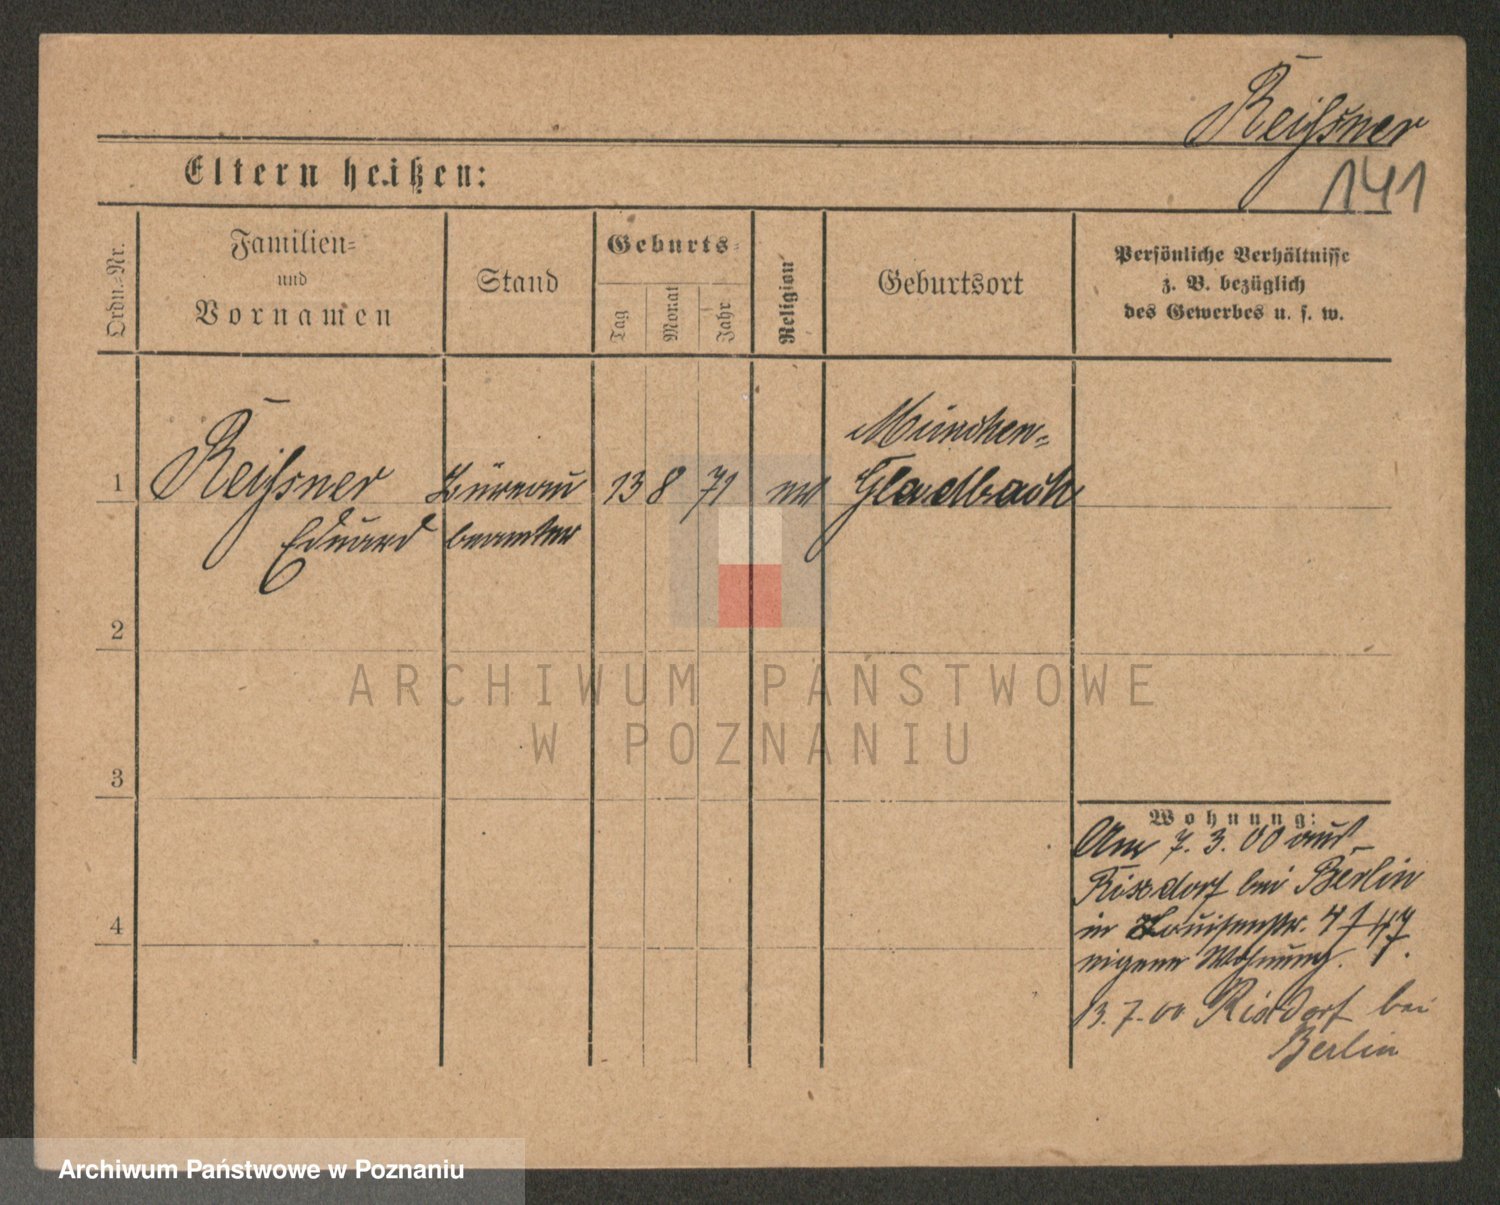 Reißsner
141
Eltern heißen:
Ordn.-Nr.
Familien-
und
Vornamen
Stand
Geburts-
Tag
Monat
Jahr
Religion
Geburtsort
Persönliche Verhältnisse
z. B. bezüglich
des Gewerbes u. s. w.
München-
1 Reißsner Büreau 13 8 71 Gladbach
Eduard beamter
2
ARCHIWUM PAŃSTWOWE
W POZNANIU
3
Wohnung:
Am 7. 3. 00 aus
Rixdorf bei Berlin
in Louisenstr.
4
eigene Wohnung.
13. 7. 00 Rixdorf bei
Berlin
Archiwum Państwowe w Poznaniu